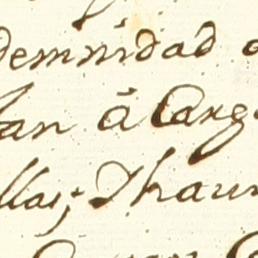 demnidad
lan â Carg
llas; Thaun